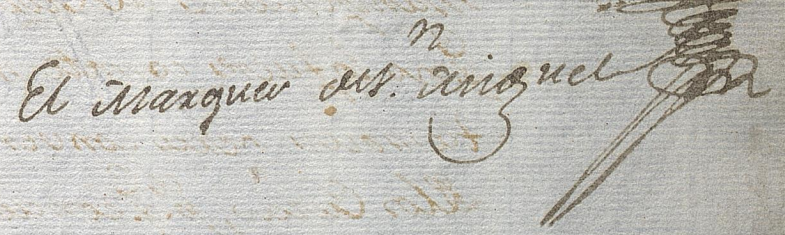 El Marques de S.n Miguel